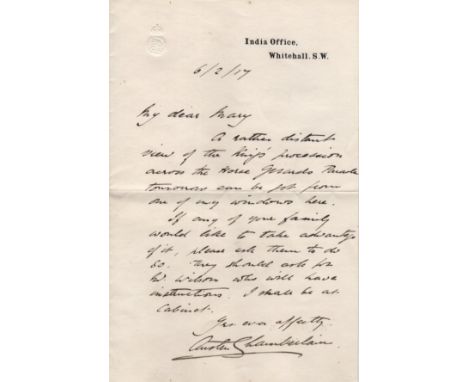 India Office,
Whitehall. S.W.
6/2/17
My dear Mary
A rather distant
view of the King's procession
across the Horse Guards Parade
tomorrow can be got from
one of my windows here.
If any of your family
would like to take advantage
of it, please ask them to do
so. They should ask for
Mr. Wilson who will have
instructions. I shall be at
Cabinet.
Yrs ever affectly
Austen Chamberlain